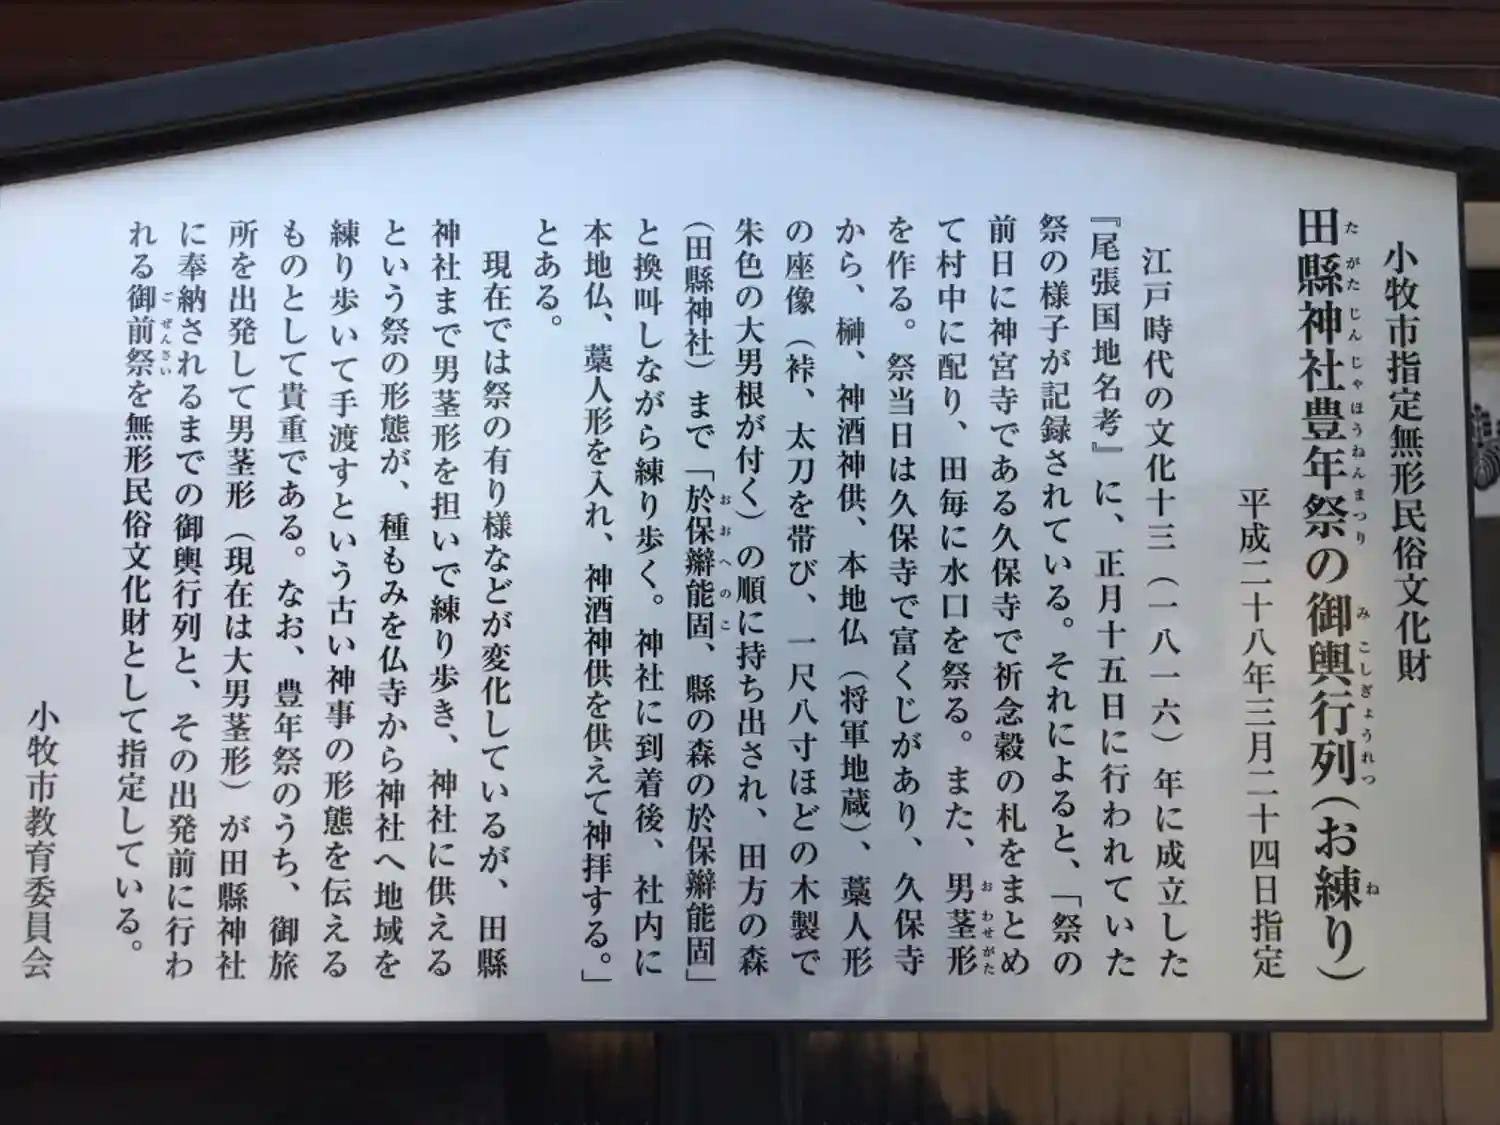 小牧市指定無形民俗文化財
田縣神社豊年祭の御輿行列（お練り）
たがたじんじゃほうねんまつり みこしぎょうれつ ね
平成二十八年三月二十四日指定
江戸時代の文化十三（一八一六）年に成立した
『尾張国地名考』に、正月十五日に行われていた
祭の様子が記録されている。それによると、「祭の
前日に神宮寺である久保寺で祈念穀の札をまとめ
て村中に配り、田毎に水口を祭る。また、男茎形
おわせがた
を作る。祭当日は久保寺で富くじがあり、久保寺
から、榊、神酒神供、本地仏（将軍地蔵）、藁人形
の座像（裃、太刀を帯び、一尺八寸ほどの木製で
朱色の大男根が付く）の順に持ち出され、田方の森
（田縣神社）まで「於保辦能固、縣の森の於保辦能固」
おおへのこ
と換叫しながら練り歩く。神社に到着後、社内に
本地仏、藁人形を入れ、神酒神供を供えて神拝する。」
とある。
現在では祭の有り様などが変化しているが、田縣
神社まで男茎形を担いで練り歩き、神社に供える
という祭の形態が、種もみを仏寺から神社へ地域を
練り歩いて手渡すという古い神事の形態を伝える
ものとして貴重である。なお、豊年祭のうち、御旅
所を出発して男茎形（現在は大男茎形）が田縣神社
に奉納されるまでの御輿行列と、その出発前に行わ
れる御前祭を無形民俗文化財として指定している。
ごぜんさい
小牧市教育委員会